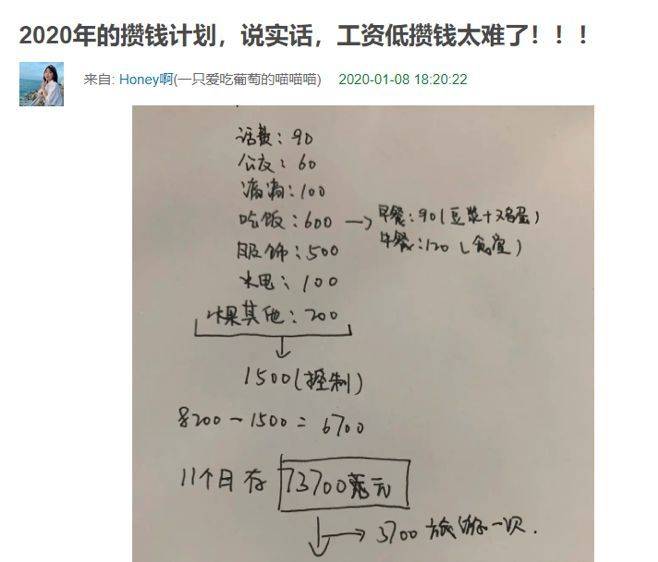 2020年的攒钱计划，说实话，工资低攒钱太难了！！！
来自: Honey啊(一只爱吃葡萄的喵喵喵) 2020-01-08 18:20:22
话费：90
公交：60
滴滴：100
吃饭：600 → 早餐：90（豆浆+鸡蛋）
午餐：120（食堂）
服饰：500
水电：100
水果其他：200
1500（控制）
8200-1500=6700
11个月存 73700元
3700 旅游一次.